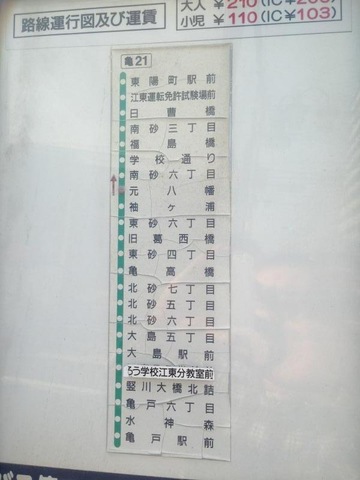 路線運行図及び運賃
大人 ¥210 (IC¥206)
小児 ¥110 (IC¥103)
亀21
東陽町駅前
江東運転免許試験場前
日曹橋
南砂三丁目
福島橋
学校通り
南砂六丁目
元八幡
袖ヶ浦
東砂六丁目
旧葛西橋
東砂四丁目
亀高橋
北砂七丁目
北砂五丁目
北砂六丁目
大島五丁目
大島駅前
ろう学校江東分教室前
竪川大橋北詰
亀戸六丁目
水神森
亀戸駅前